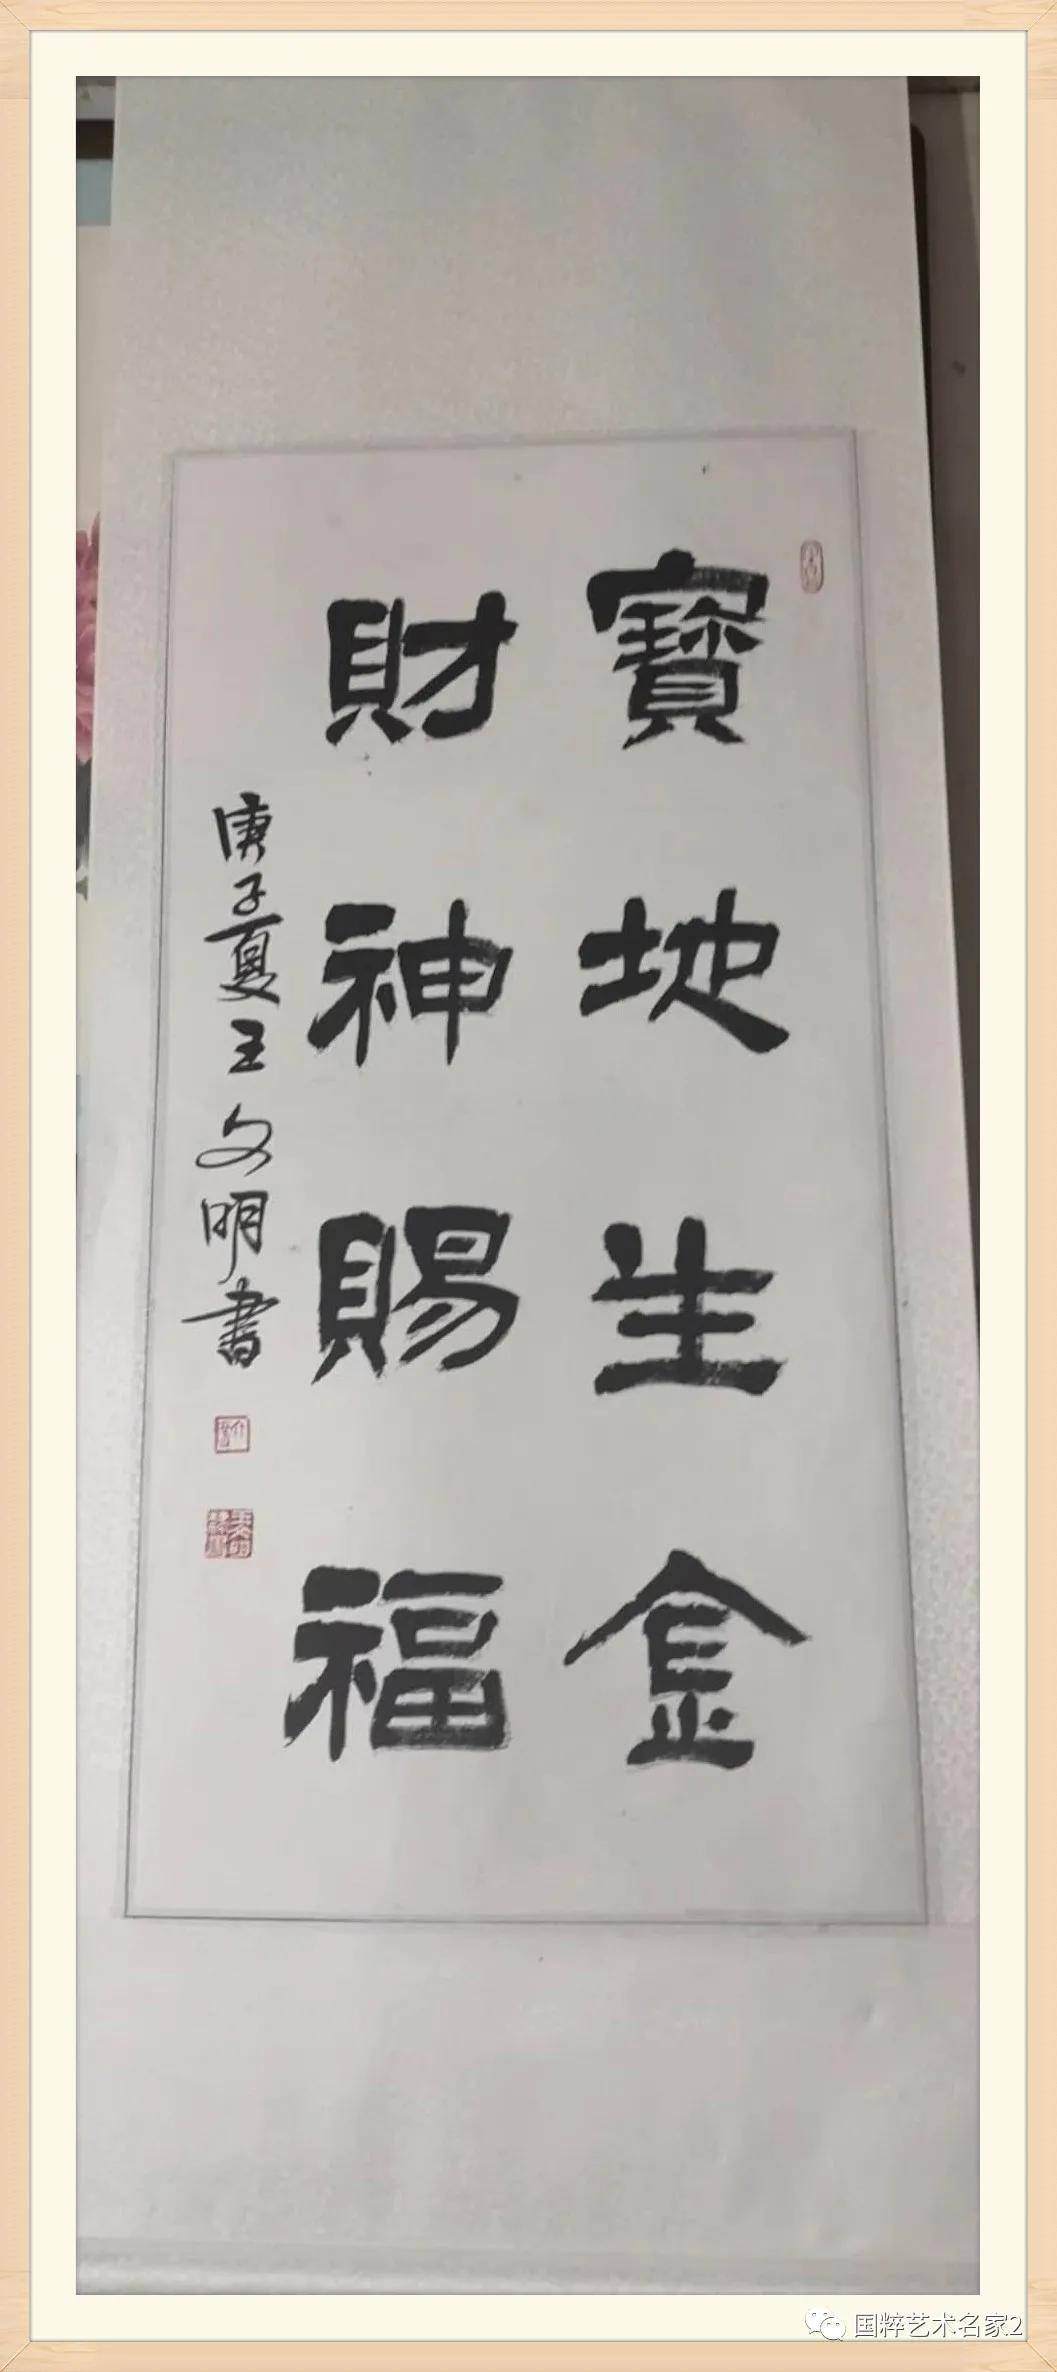 寶地生金
財神賜福
庚子夏王文明書
国粹艺术名家2